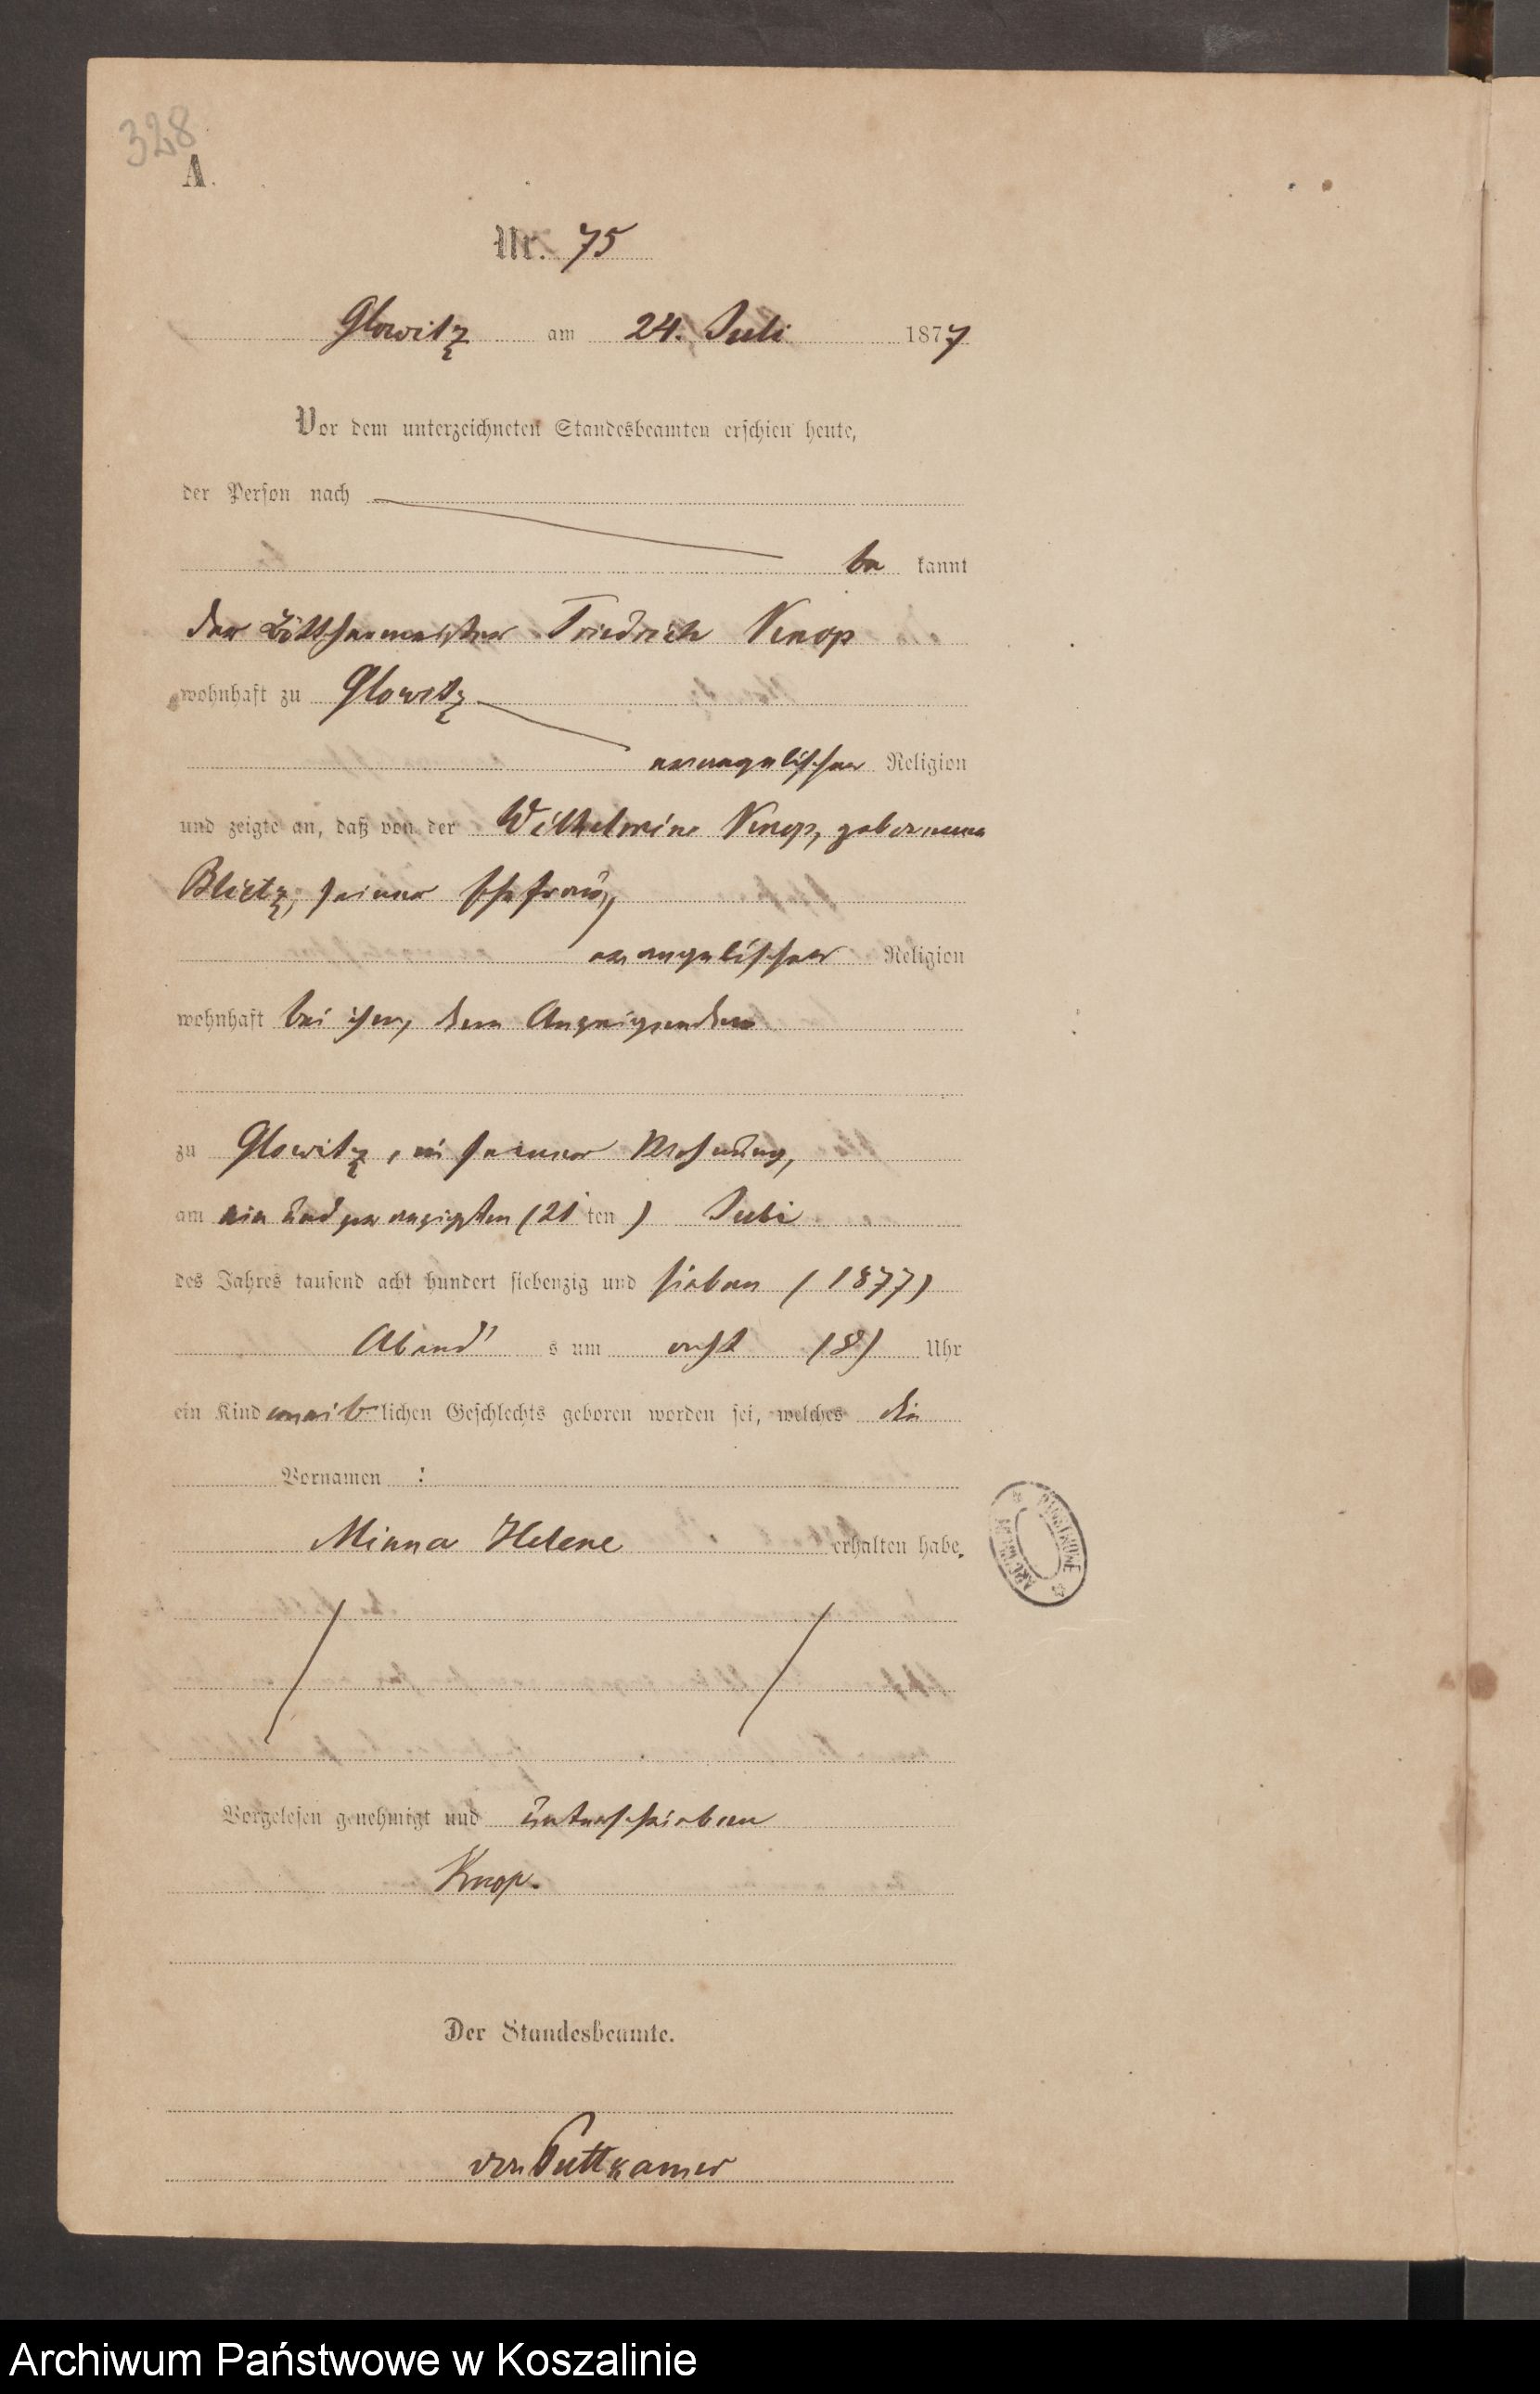 328
A.
Nr. 75
Glowitz am 24. Juli 1877
Vor dem unterzeichneten Standesbeamten erschien heute,
der Person nach
be kannt
der Böttchermeister Friedrich Knop
wohnhaft zu Glowitz
evangelischer Religion
und zeigte an, daß von der Wilhelmine Knop, geborenen
Blietz, seiner Ehefrau,
evangelischer Religion
wohnhaft bei ihm, dem Anzeigenden
zu Glowitz, in seiner Wohnung,
am ein und zwanzigsten (21 ten) Juli
des Jahres tausend acht hundert siebenzig und sieben (1877)
Abend s um acht (8) Uhr
ein Kind weib lichen Geschlechts geboren worden sei, welches die
Vornamen :
Minna Helene erhalten habe.
Vorgelesen genehmigt und unterschrieben
Knop.
Der Standesbeamte.
von Puttkamer
ARCHIWUM PAŃSTWOWE
Archiwum Państwowe w Koszalinie